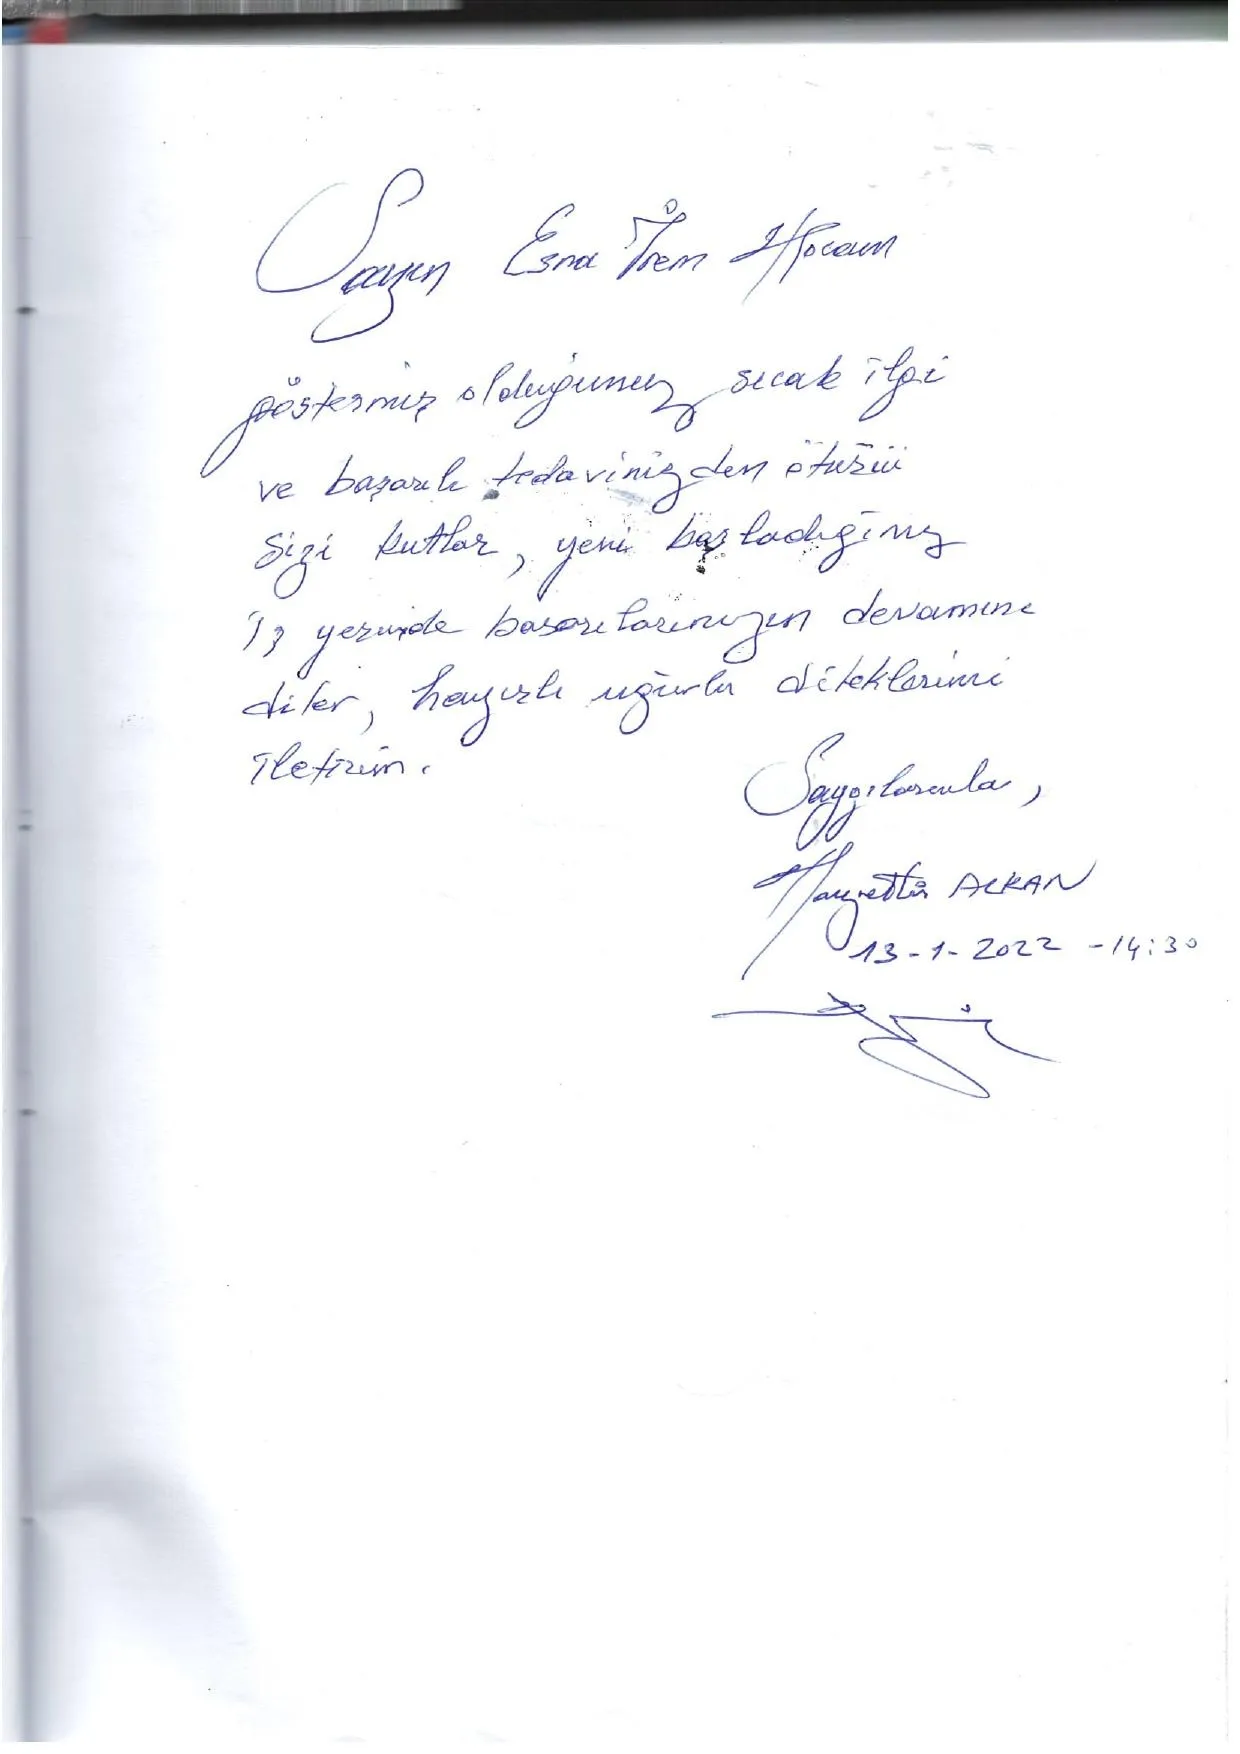 Sayın Esna İrem Hocam
göstermiş olduğunuz sıcak ilgi
ve başarılı tedavinizden ötürü
sizi kutlar, yeni başladığınız
iş yerinde başarılarınızın devamını
diler, hayırlı uğurlu dileklerimi
iletirim.
Saygılarımla,
Hayrettin ALKAN
13-1-2022 -14:30